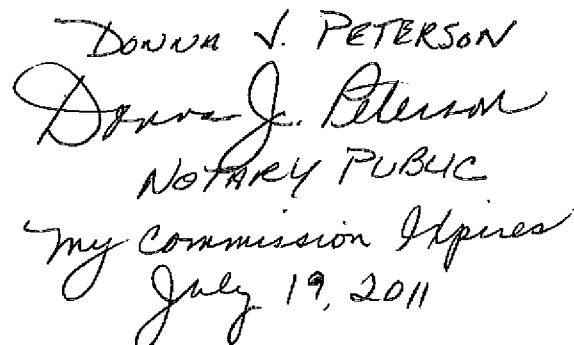 DONNA J. PETERSON
Donna J. Peterson
NOTARY PUBLIC
My Commission Expires
July 19, 2011